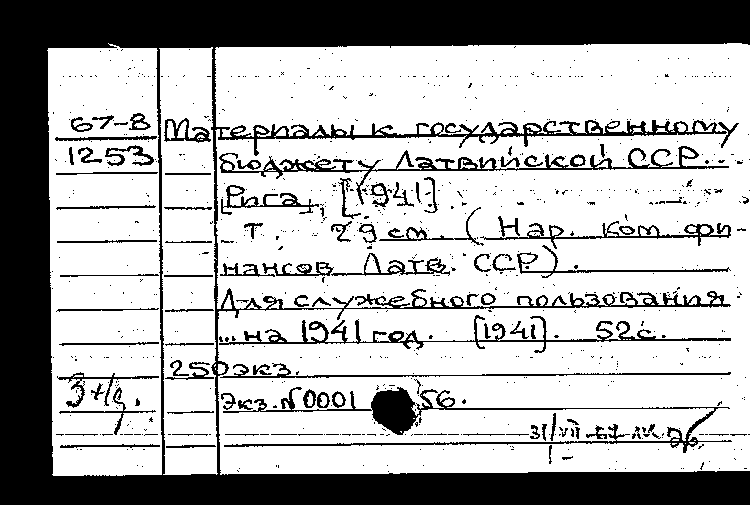 67-8 Материалы к государственному
1253 бюджету Латвийской ССР..
[Рига], [1941].
Т. 29 см. (Нар. ком фи-
нансов Латв. ССР).
Для служебного пользования
...на 1941 год. [1941]. 52 с.
250 экз.
Экз. №0001 56.
31/VII-67